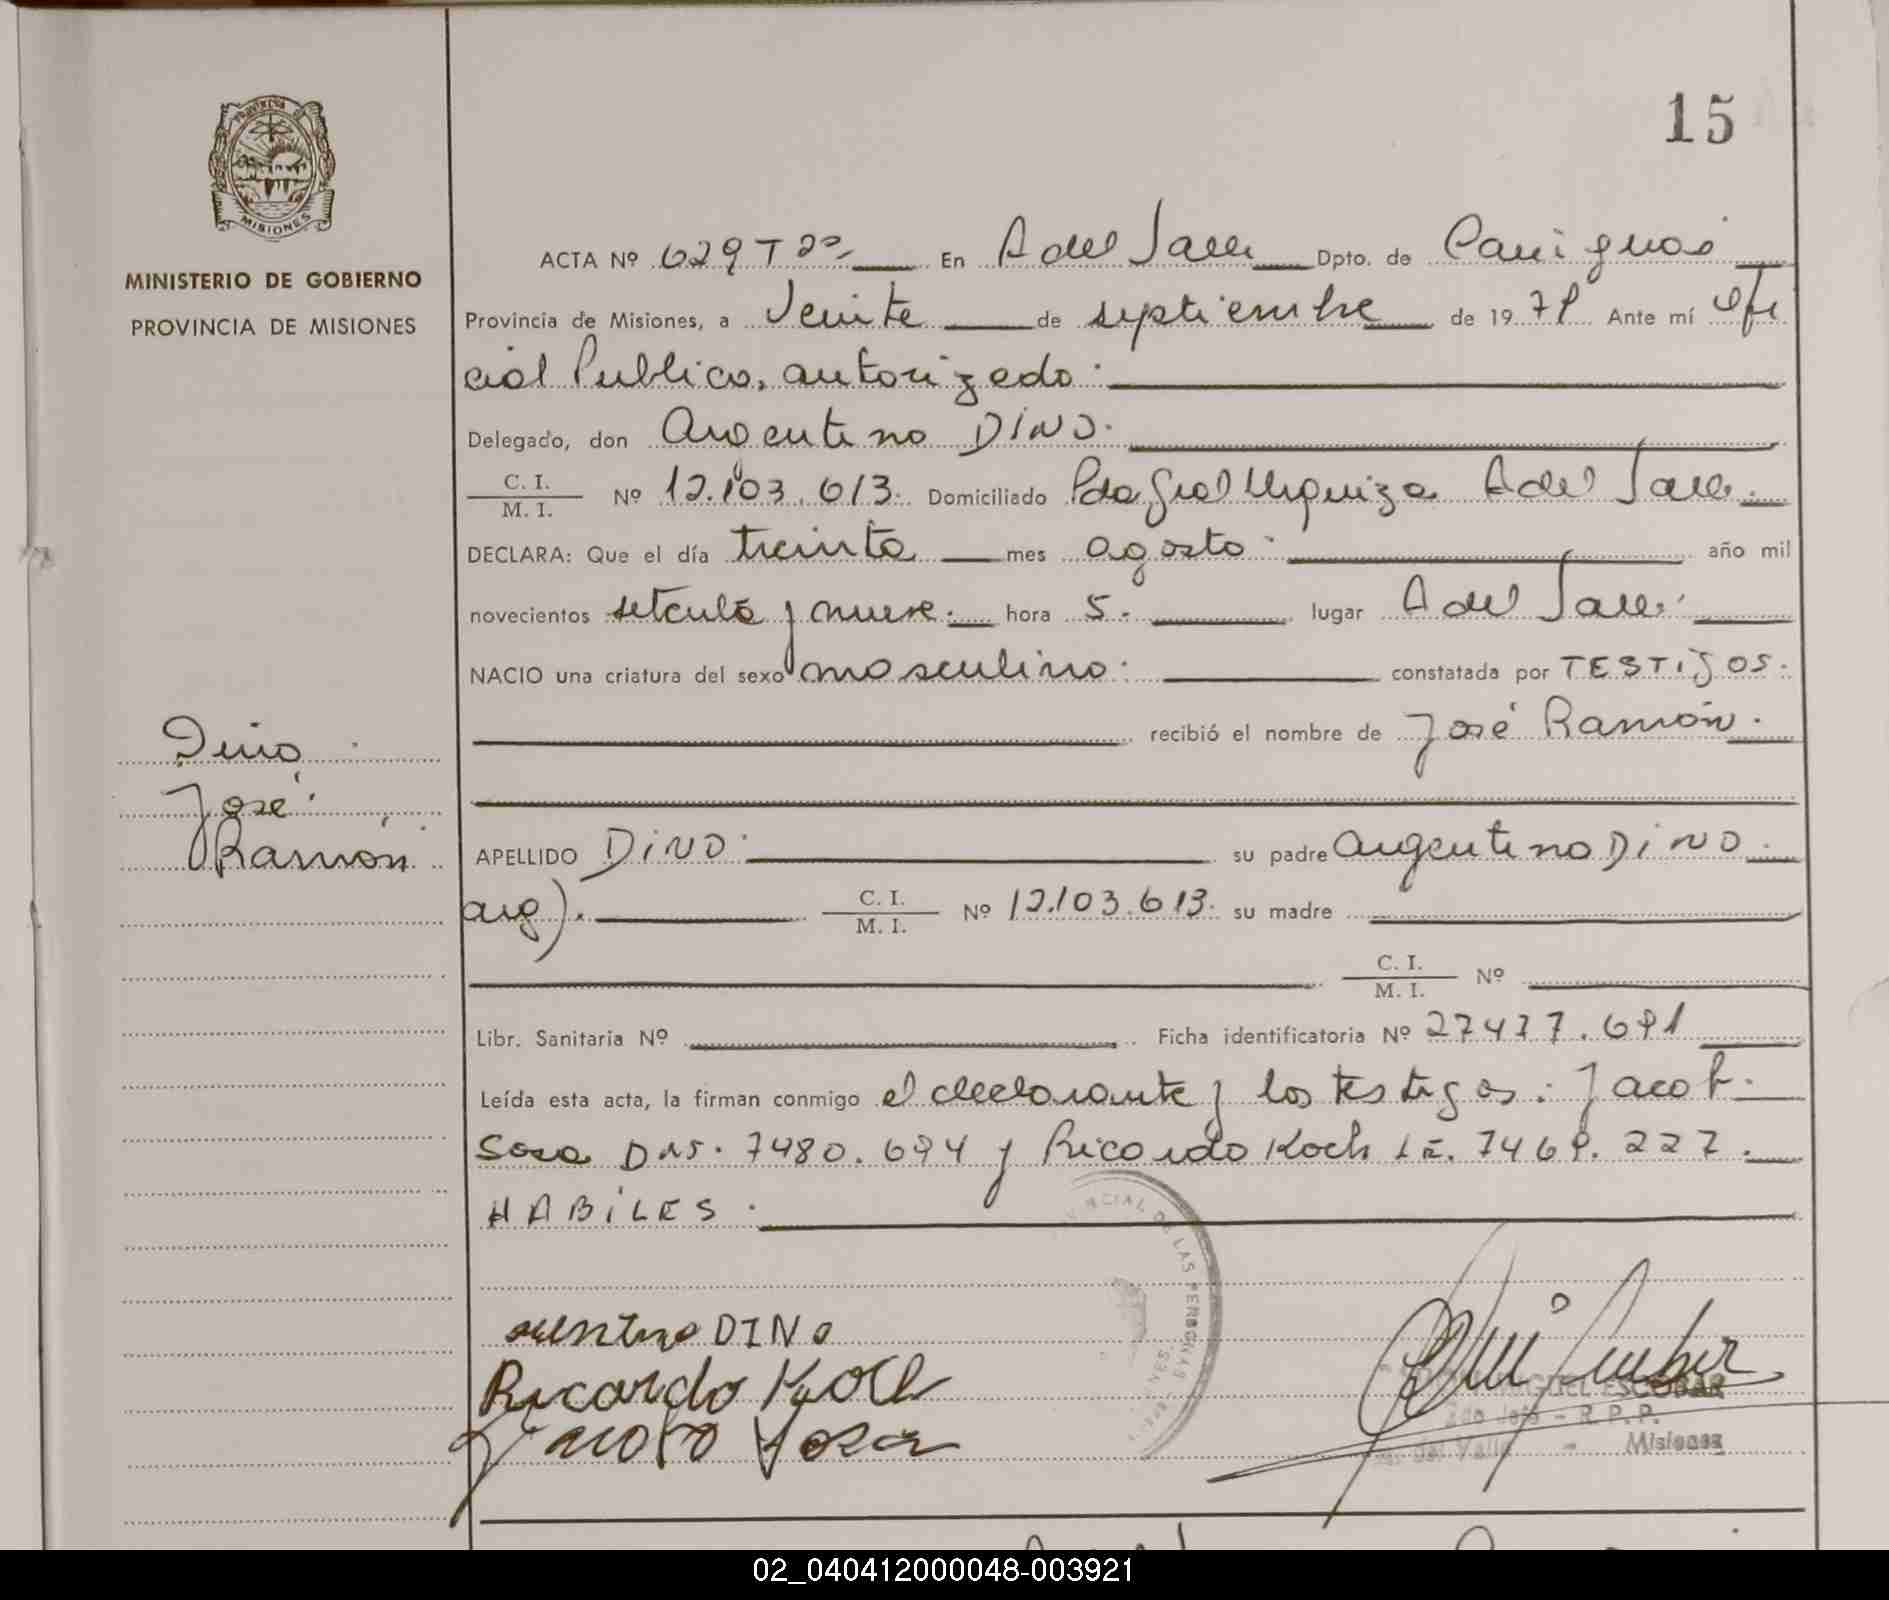 15
PROVINCIA DE
MISIONES
MINISTERIO DE GOBIERNO
PROVINCIA DE MISIONES
ACTA Nº 629 T 2º En A del Valle Dpto. de Cainguás
Provincia de Misiones, a Veinte de septiembre de 1979 Ante mí Ofi
cial Publico, autorizado.
Delegado, don Argentino DINO.
C. I.
M. I. Nº 12.103.613. Domiciliado Pdo Gral Urquiza A del Valle.
DECLARA: Que el día treinta mes agosto año mil
novecientos setenta y nueve. hora 5. lugar A del Valle.
NACIO una criatura del sexo masculino. constatada por TESTIGOS.
recibió el nombre de José Ramón.
Dino
José
Ramón
APELLIDO DINO su padre Argentino DINO
arg). C. I.
M. I. Nº 12.103.613. su madre
C. I.
M. I. Nº
Libr. Sanitaria Nº Ficha identificatoria Nº 27477.691
Leída esta acta, la firman conmigo el declarante y los testigos: Jacob.
Sosa 7480.694 y Ricardo Koch LE. 7469.227.
HABILES.
CIAL DE LAS PERSONAS
DINO
Ricardo Koch
Jacobo Sosa
MIGUEL ESCOBAR
2do Jefe - R. P. P.
del Valle - Misiones
02_040412000048-003921